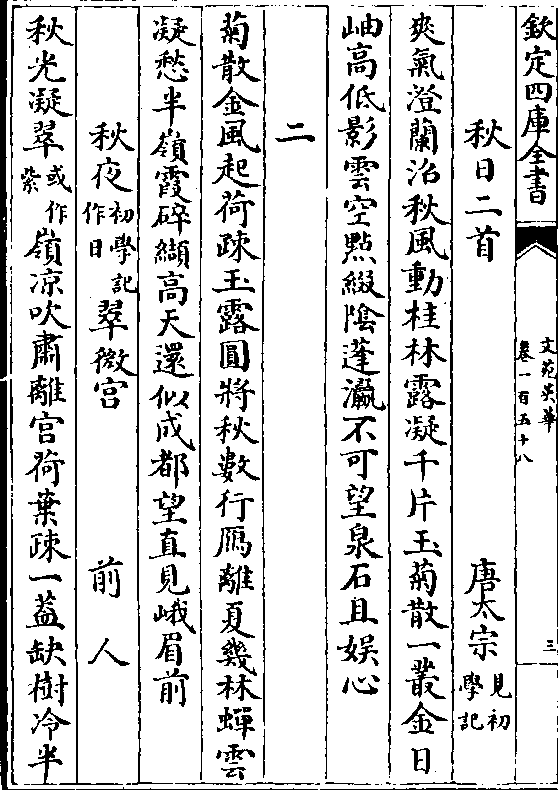 欽定四庫全書
文苑英華
卷一百五十八
三
秋日二首
唐太宗
見初
學記
爽氣澄蘭沼秋風動桂林露凝千片玉菊散一叢金日
岫高低影雲空點綴陰蓬瀛不可望泉石且娯心
二
菊散金風起荷疎玉露圓將秋數行鴈離夏幾林蟬雲
凝愁半嶺霞碎纈高天還似成都望直見峨眉前
秋夜初學記作日翠微宮
前人
秋光凝翠或作紫嶺凉吹肅離宮荷葉疎一蓋缺樹冷半